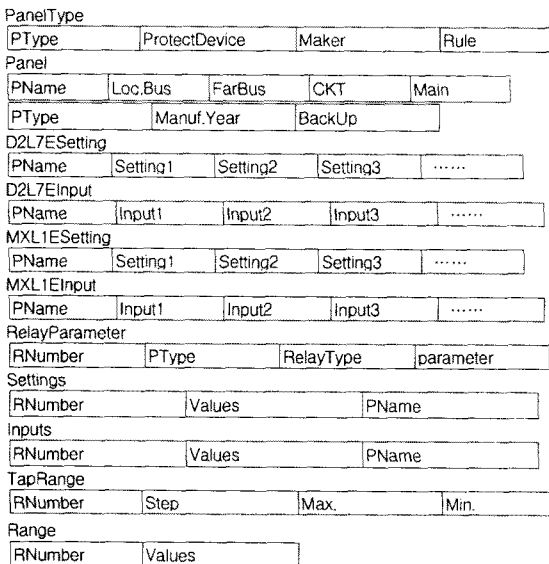 PanelType
PType ProtectDevice Maker Rule
Panel
PName Loc.Bus FarBus CKT Main
PType Manuf.Year BackUp
D2L7ESetting
PName Setting1 Setting2 Setting3 ......
D2L7EInput
PName Input1 Input2 Input3 ......
MXL1ESetting
PName Setting1 Setting2 Setting3 ......
MXL1EInput
PName Input1 Input2 Input3 ......
RelayParameter
RNumber PType RelayType parameter
Settings
RNumber Values PName
Inputs
RNumber Values PName
TapRange
RNumber Step Max. Min.
Range
RNumber Values